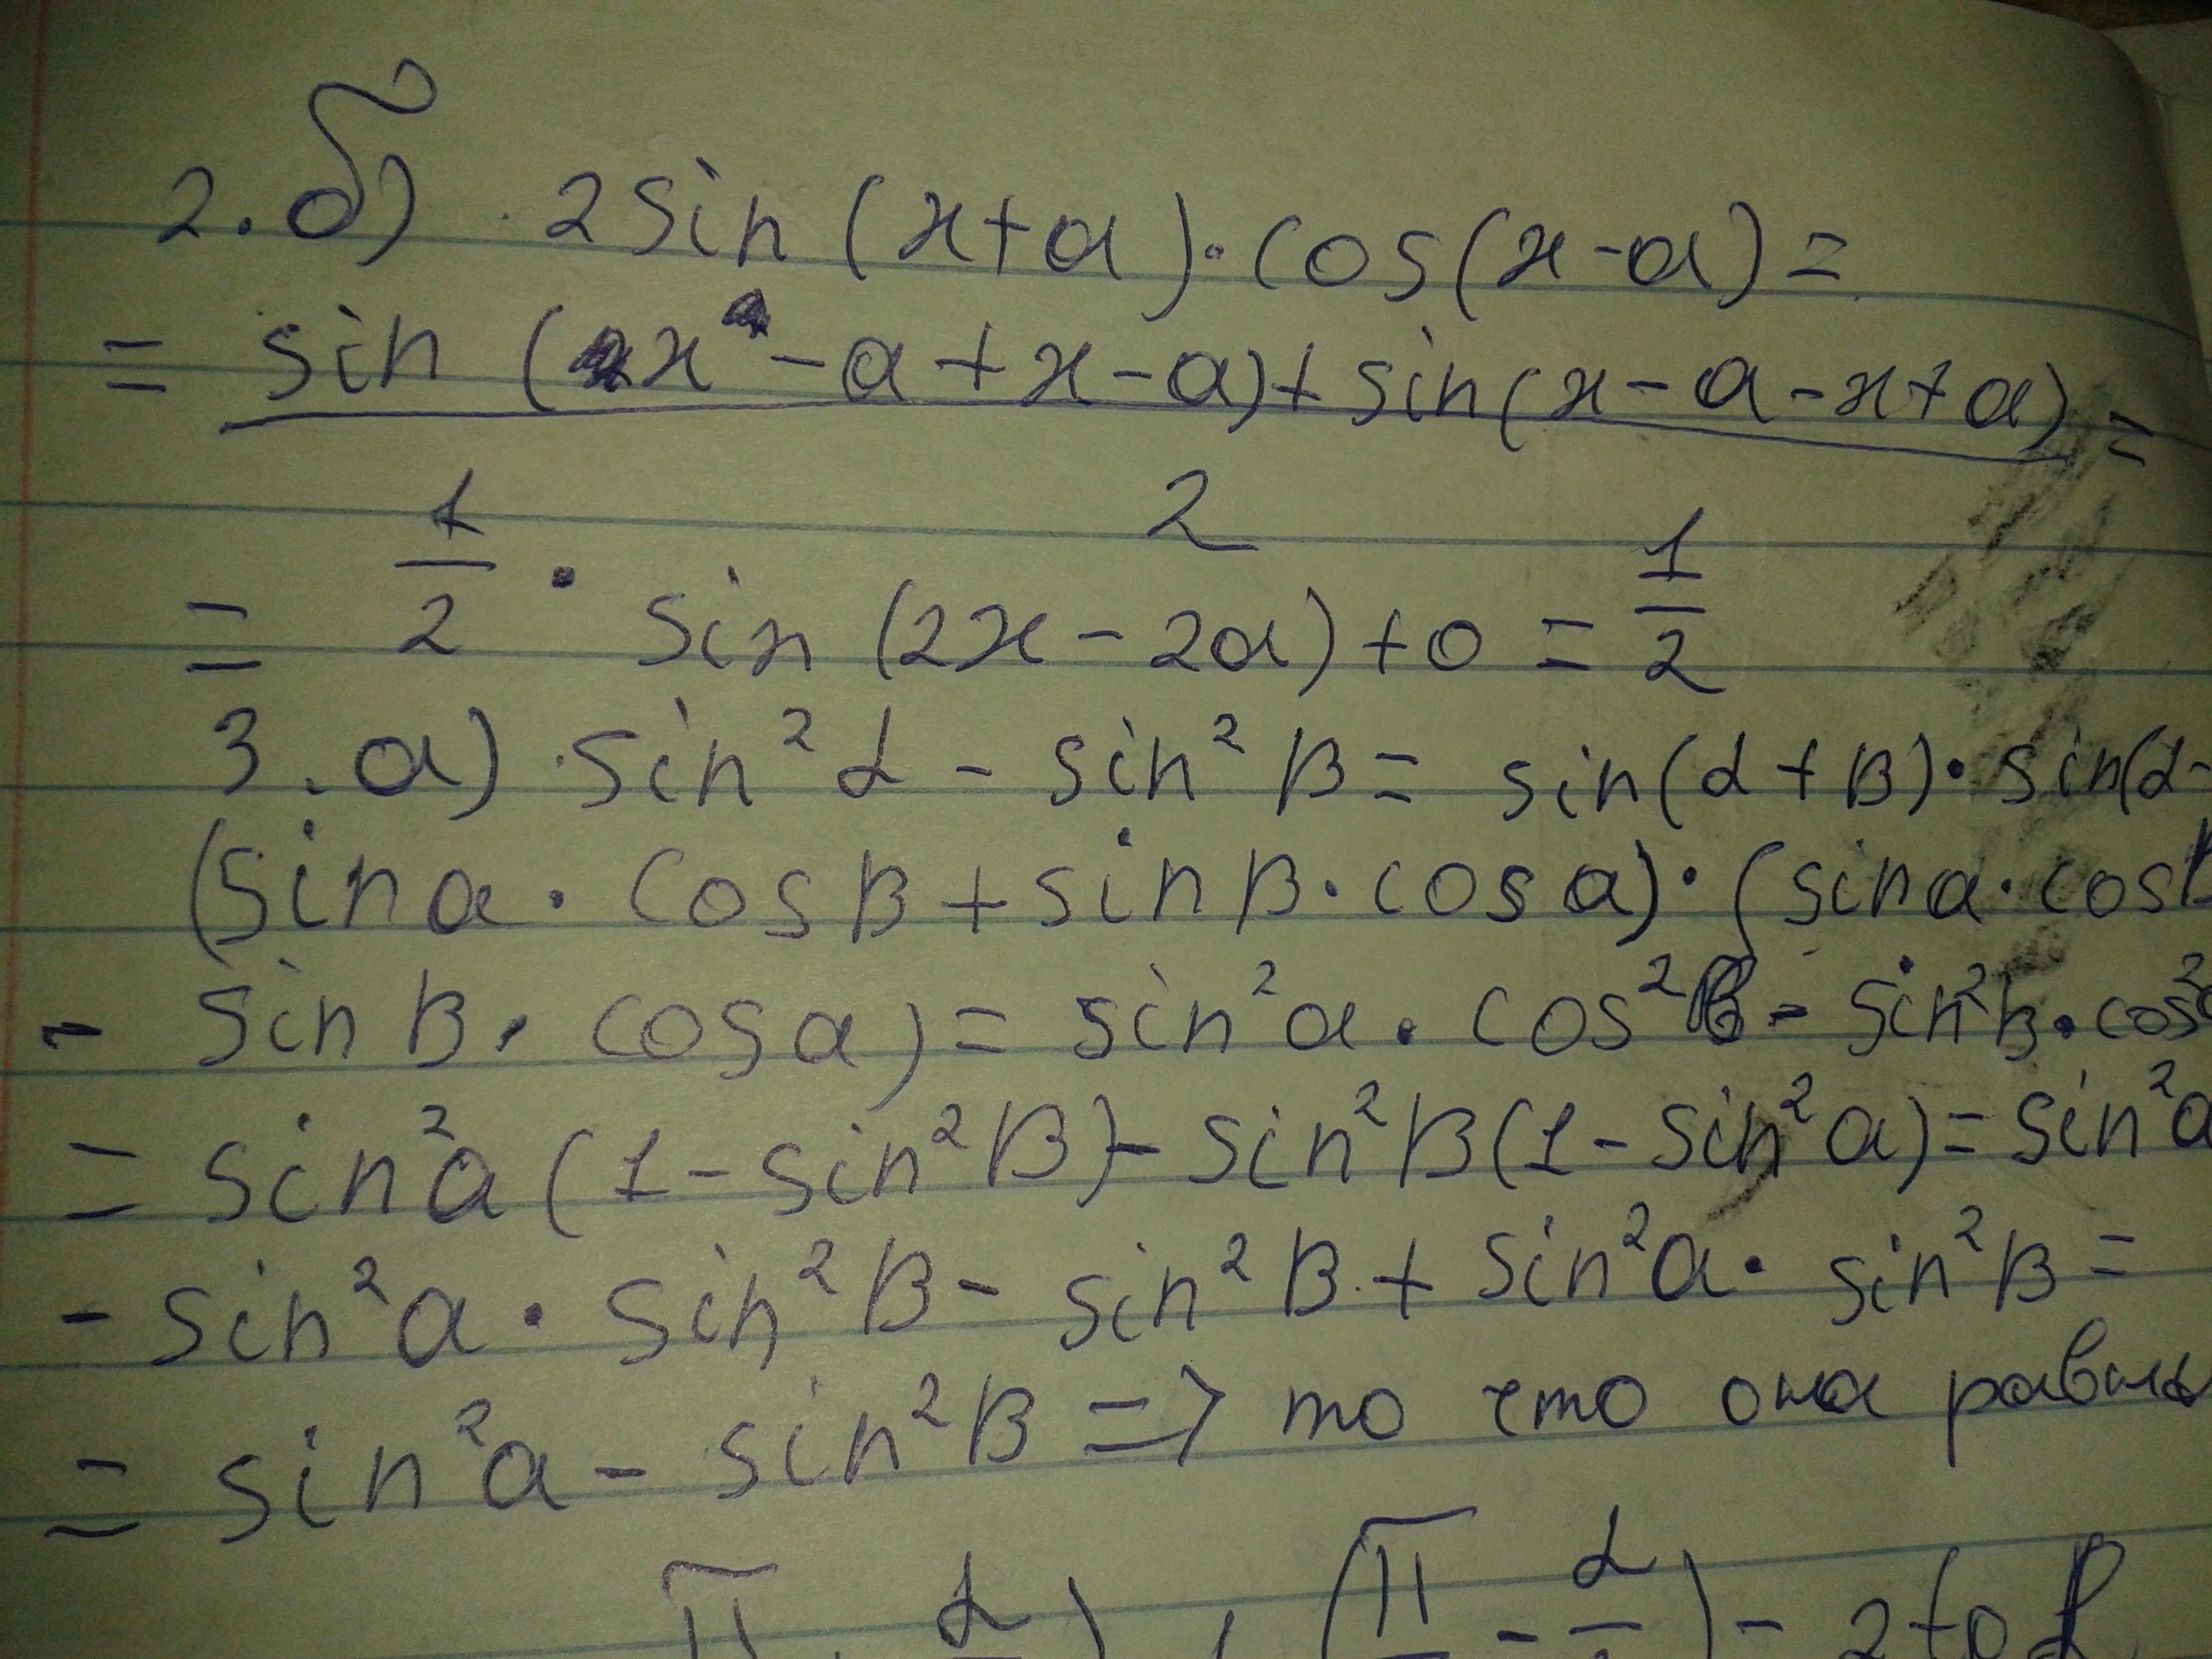 2. б) 2 sin (x+a)·cos(x-a)=
= sin (x-a+x-a)+sin(x-a-x+a) =
2
= 1/2 · sin (2x-2a)+0 = 1/2
3. а) sin² α - sin² β = sin(α+β)·sin(α-
(sin a · cos β + sin β · cos a)·(sin a · cos β
- sin β · cos a) = sin² a · cos² β - sin² β · cos² a
= sin² a (1 - sin² β) - sin² β (1 - sin² a) = sin² a
- sin² a · sin² β - sin² β + sin² a · sin² β =
= sin² a - sin² β => то что она равны
π α ) (π - α ) = 2 tg α